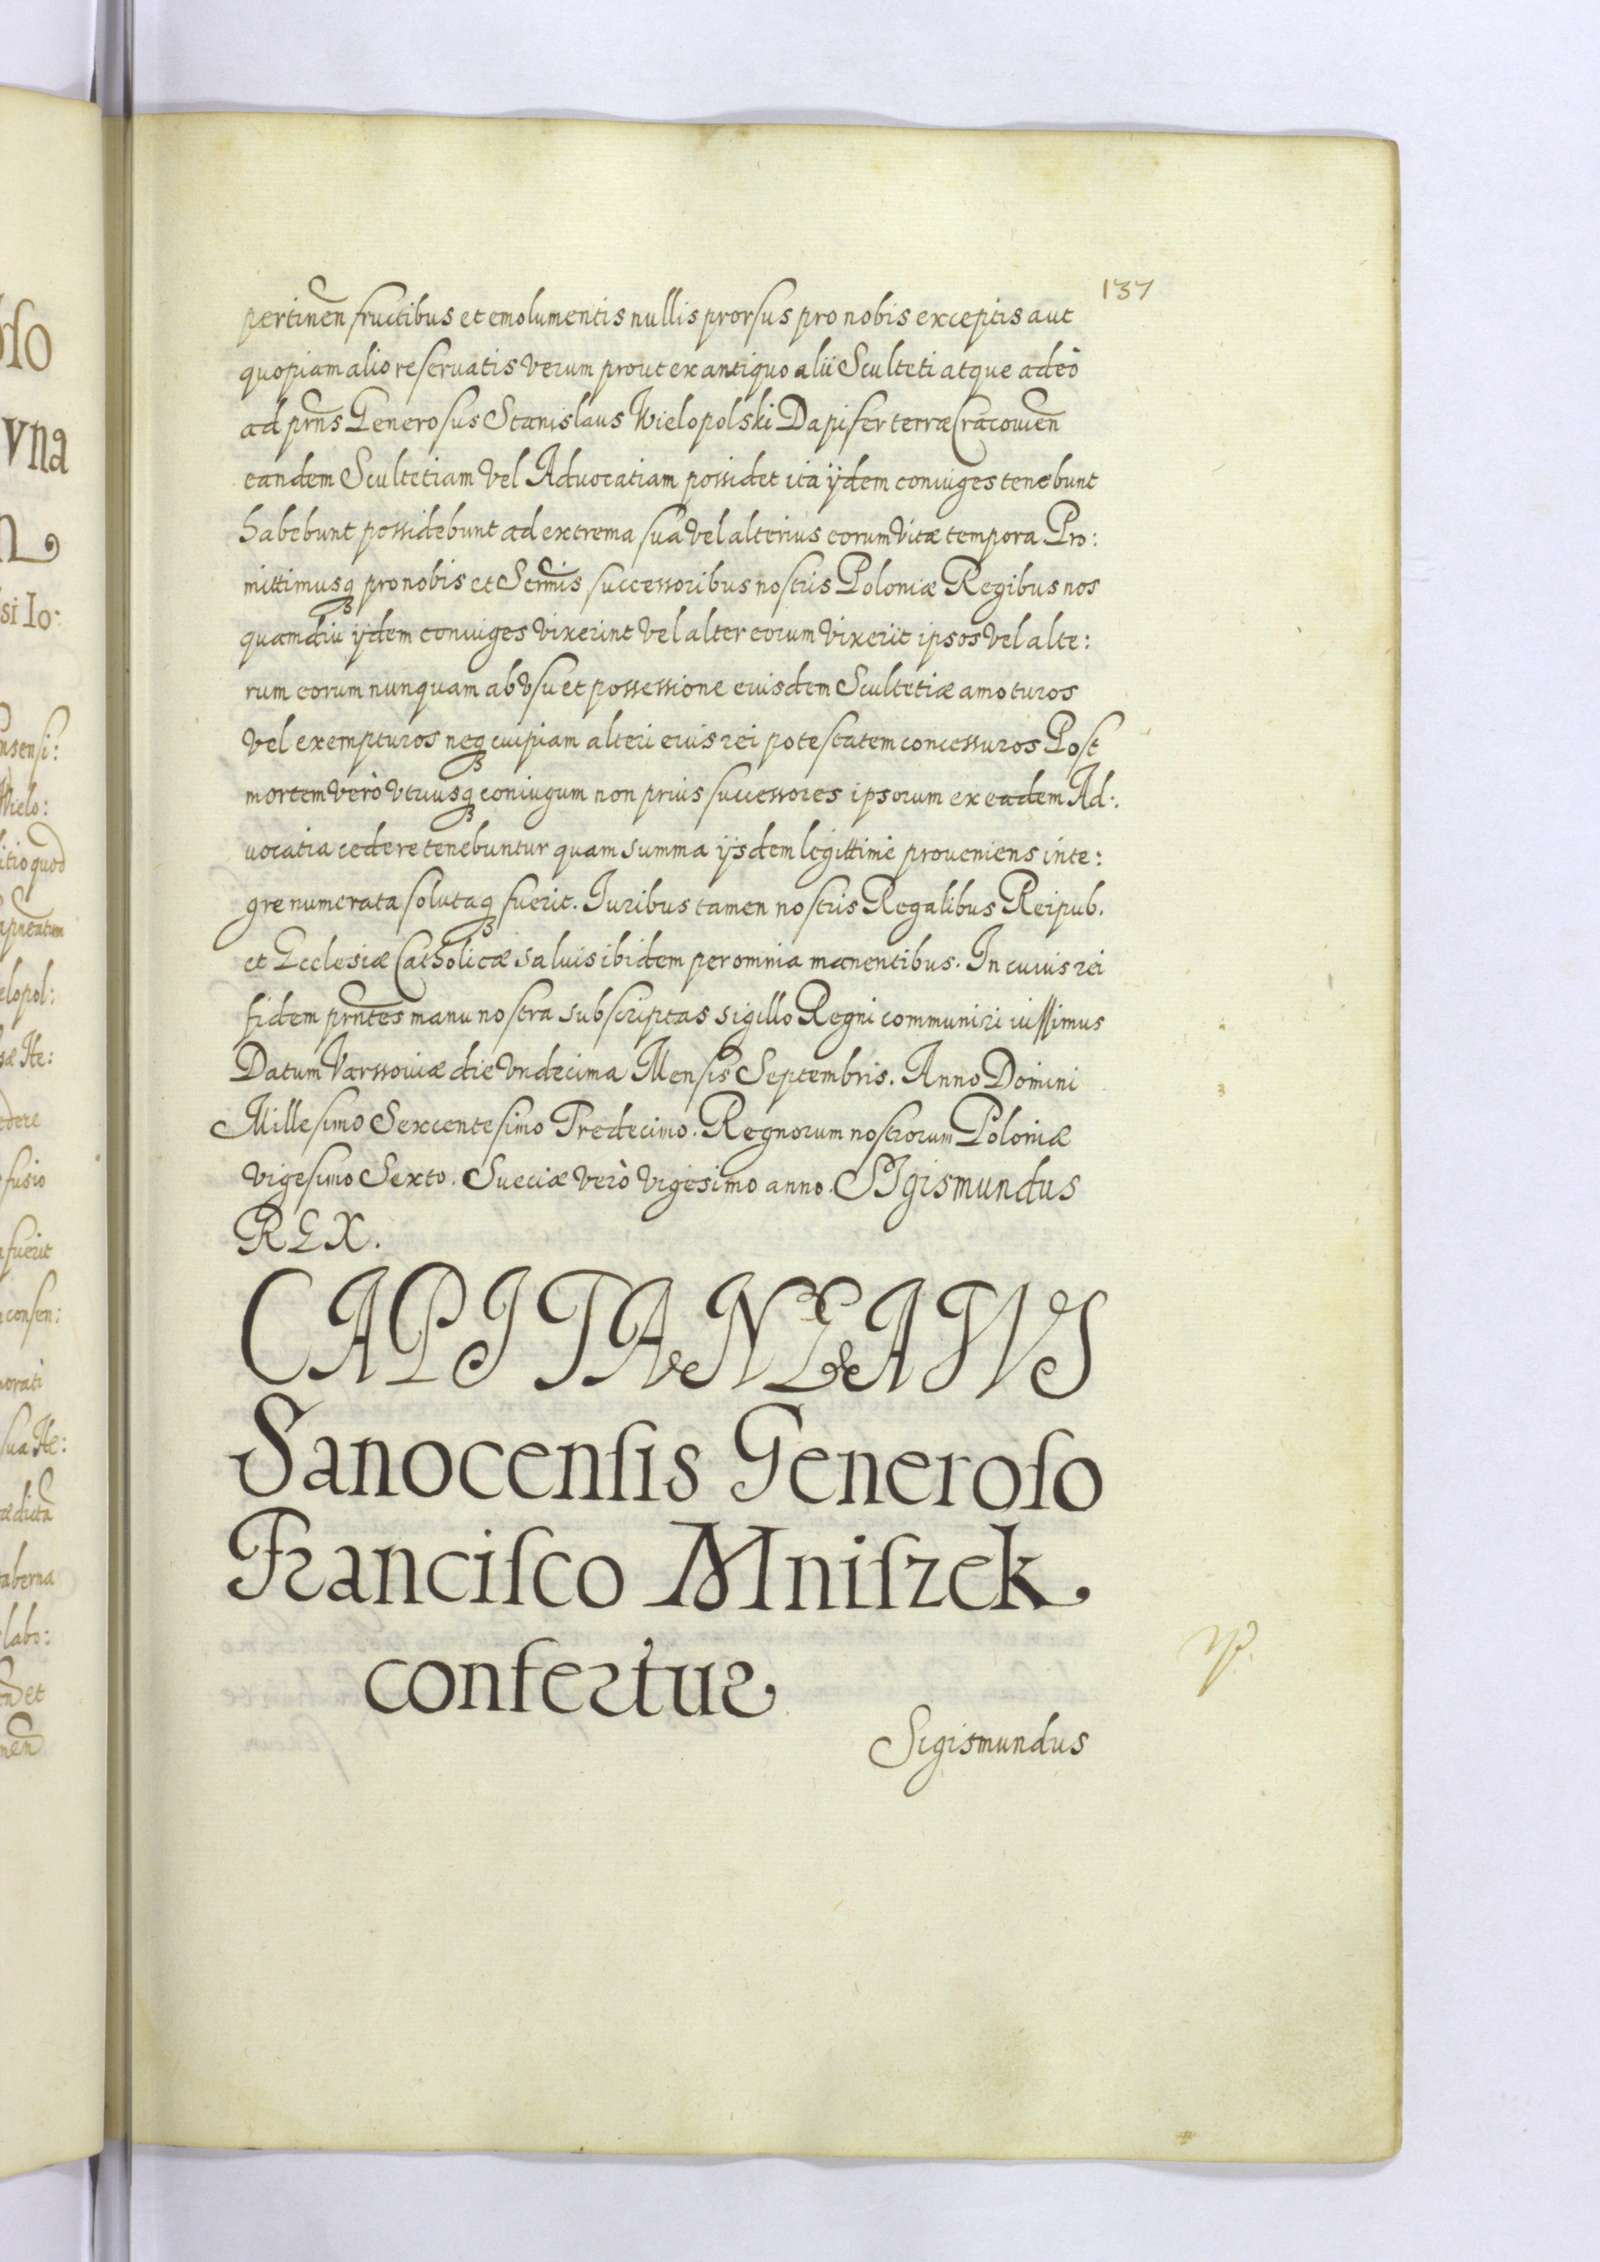 137
pertinen̄ fructibus et emolumentis nullis prorsus pro nobis exceptis aut
quopiam alio reseruatis verum prout ex antiquo alii Sculteti atque adeò
ad prn̄s Generosus Stanislaus Wielopolski Dapifer terræ Cracouien̄
eandem Scultetiam vel Aduocatiam possidet ita ÿdem coniuges tenebunt
habebunt possidebunt ad extrema sua vel alterius eorum vitæ tempora Pro:
mittimusq₃ pro nobis et Serm̄is successoribus nostris Poloniæ Regibus nos
quamdiu ÿdem coniuges vixerint vel alter eorum vixerit ipsos vel alte:
rum eorum nunquam ab vsu et possessione eiusdem Scultetiæ amoturos
vel exempturos neq₃ cuipiam alteri eius rei potestatem concessuros Post
mortem verò vtriusq₃ coniugum non prius successores ipsorum ex eadem Ad:
uocatia cedere tenebuntur quam summa ÿsdem legittimè proueniens inte:
gre numerata solutaq₃ fuerit. Iuribus tamen nostris Regalibus Reipub.
et Ecclesiæ Catholicæ saluis ibidem per omnia manentibus. In cuius rei
fidem prn̄tes manu nostra subscriptas sigillo Regni communiri iussimus
Datum Varssouiæ die vndecima Mensis Septembris. Anno Domini
Millesimo Sexcentesimo Tredecimo. Regnorum nostrorum Poloniæ
vigesimo Sexto. Sueciæ verò vigesimo anno. SIgismundus
REX.
CAPITANEATVS
Sanocensis Generoso
Francisco Mniszek
confertur
Sigismundus